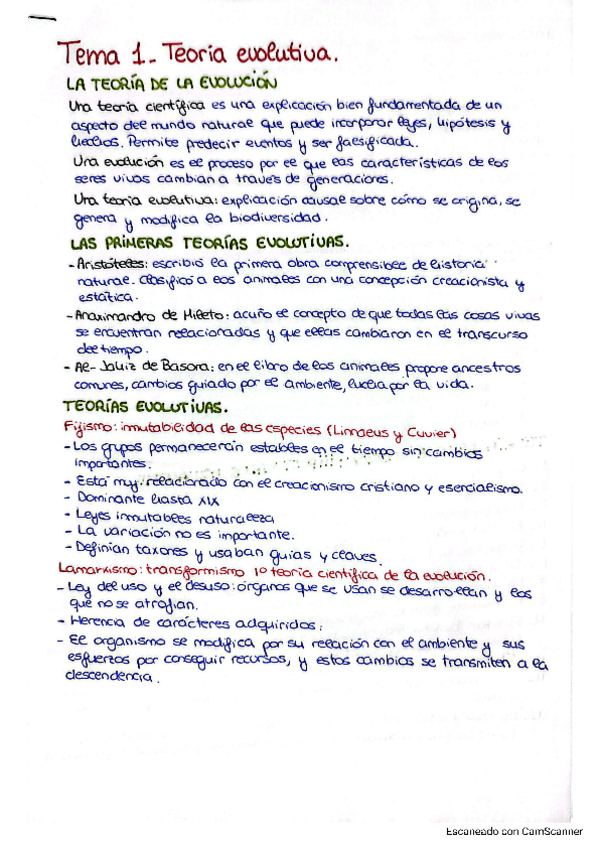 Tema 1_ Teoría evolutiva.
LA TEORÍA DE LA EVOLUCIÓN
Una teoría científica es una explicación bien fundamentada de un
aspecto del mundo natural que puede incorporar leyes, hipótesis y
hechos. Permite predecir eventos y ser falsificada.
Una evolución es el proceso por el que las características de los
seres vivos cambian a través de generaciones.
Una teoría evolutiva: explicación causal sobre cómo se origina, se
genera y modifica la biodiversidad.
LAS PRIMERAS TEORÍAS EVOLUTIVAS.
- Aristóteles: escribió la primera obra comprensible de historia
natural. Clasificó a los animales con una concepción creacionista y
estática.
- Anaximandro de Mileto: acuño el concepto de que todas las cosas vivas
se encuentran relacionadas y que ellas cambiaron en el transcurso
del tiempo.
- Al-Jahiz de Basora: en el libro de los animales propone ancestros
comunes, cambios guiado por el ambiente, lucha por la vida.
TEORÍAS EVOLUTIVAS.
Fijismo: inmutabilidad de las especies (Linnaeus y Cuvier)
- Los grupos permanecerán estables en el tiempo sin cambios
importantes.
- Está muy relacionado con el creacionismo cristiano y esencialismo.
- Dominante hasta XIX
- Leyes inmutables naturaleza
- La variación no es importante.
- Definían taxones y usaban guías y claves.
Lamarxismo: transformismo 1º teoría científica de la evolución.
- Ley del uso y el desuso: órganos que se usan se desarrollan y los
que no se atrofian.
- Herencia de carácteres adquiridos.
- El organismo se modifica por su relación con el ambiente y sus
esfuerzos por conseguir recursos, y estos cambios se transmiten a la
descendencia.
Escaneado con CamScanner